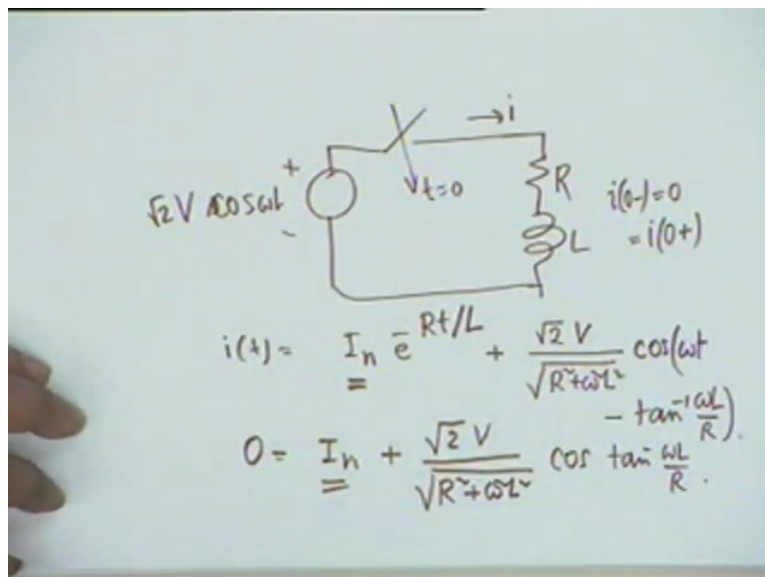 → i
+
√2 V cosωt
-
t=0
R
L
i(0-)=0
= i(0+)
i(t) = I_n e^{-Rt/L} + √2 V / √(R²+ω²L²) cos(ωt
- tan⁻¹ ωL/R).
0 = I_n + √2 V / √(R²+ω²L²) cos tan⁻ ωL/R.